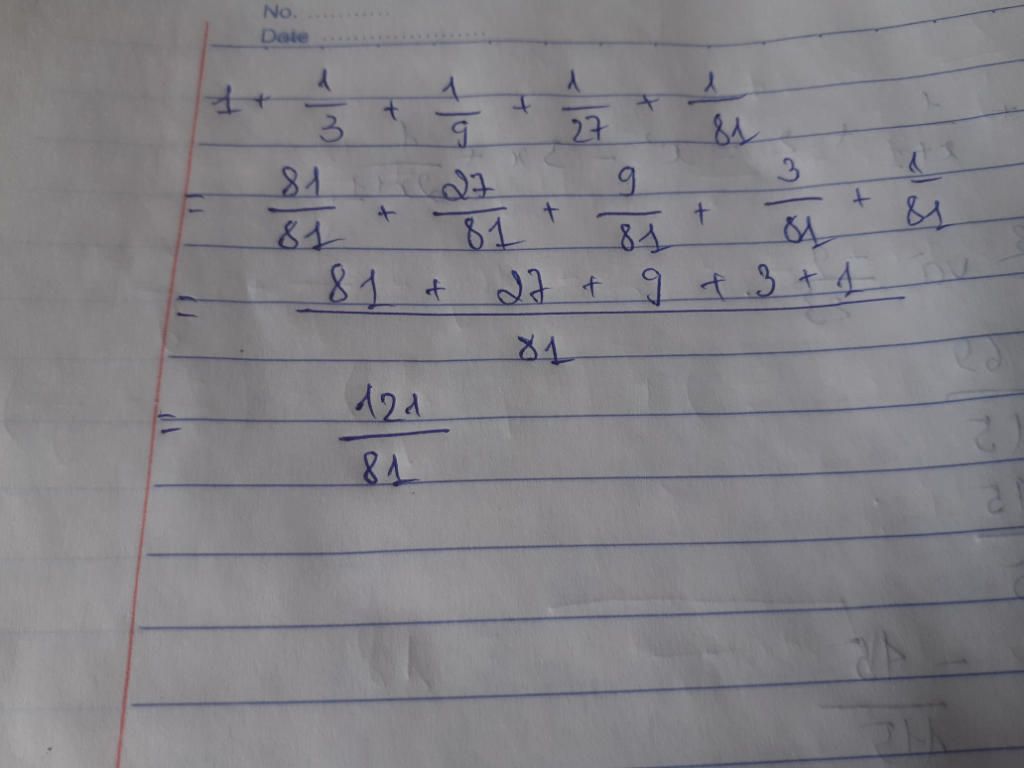 No. ............
Date ........................
1 + 1/3 + 1/9 + 1/27 + 1/81
= 81/81 + 27/81 + 9/81 + 3/81 + 1/81
= (81 + 27 + 9 + 3 + 1)/81
= 121/81